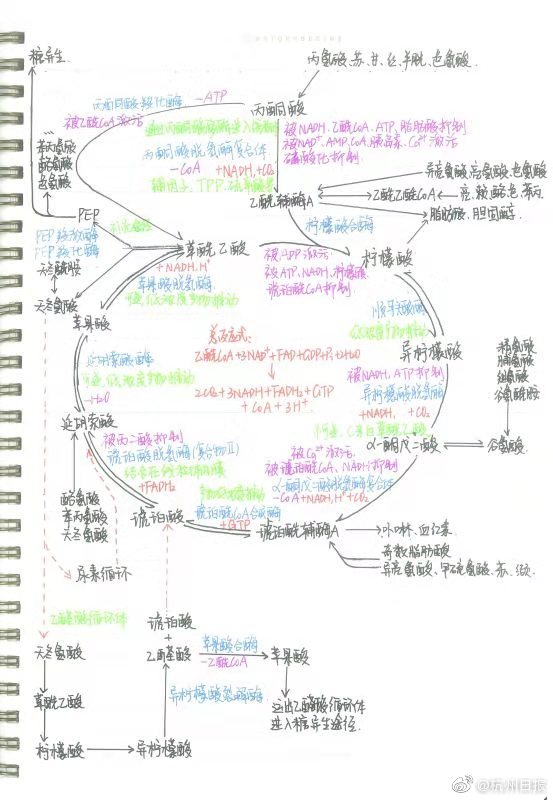 糖异生
丙氨酸、苏、甘、丝、半胱、色氨酸
丙酮酸羧化酶
-ATP
丙酮酸
被乙酰CoA激活
被NADH、乙酰CoA、ATP、脂肪酸抑制
被NAD⁺、AMP、CoA、胰岛素、Ca²⁺激活
磷酸化抑制
丙酮酸脱氢酶复合体
-CoA
+NADH, +CO₂
辅因子、TPP
苯丙氨酸
酪氨酸
色氨酸
异亮氨酸、亮氨酸、色氨酸
乙酰辅酶A
乙酰乙酰CoA
亮、赖、酪、色、苯丙
脂肪酸、胆固醇
PEP
柠檬酸合酶
PEP羧激酶
PEP羧化酶
草酰乙酸
柠檬酸
天冬酰胺
+NADH, H⁺
被ADP激活
被ATP、NADH、柠檬酸、
琥珀酰CoA抑制
苹果酸脱氢酶
天冬氨酸
苹果酸
顺乌头酸酶
总反应式:
乙酰CoA+3NAD⁺+FAD+GDP+Pi+2H₂O
2CO₂+3NADH+FADH₂+GTP
+CoA+3H⁺
延胡索酸酶
-H₂O
异柠檬酸
精氨酸
脯氨酸
组氨酸
谷氨酰胺
被NADH、ATP抑制
异柠檬酸脱氢酶
+NADH, +CO₂
延胡索酸
α-酮戊二酸
谷氨酸
被丙二酸抑制
琥珀酸脱氢酶(复合物Ⅱ)
+FADH₂
被Ca²⁺激活
被琥珀酰CoA、NADH抑制
α-酮戊二酸脱氢酶复合体
-CoA+NADH, H⁺+CO₂
酪氨酸
苯丙氨酸
天冬氨酸
琥珀酸
琥珀酰CoA合成酶
+GTP
琥珀酰辅酶A
卟啉、血红素
奇数脂肪酸
异亮氨酸、甲硫氨酸、苏、缬
尿素循环
乙醛酸循环体
琥珀酸
+
乙醛酸
苹果酸合酶
-乙酰CoA
苹果酸
天冬氨酸
异柠檬酸裂解酶
运出乙醛酸循环体
进入糖异生途径.
草酰乙酸
柠檬酸
异柠檬酸
@杭州日报